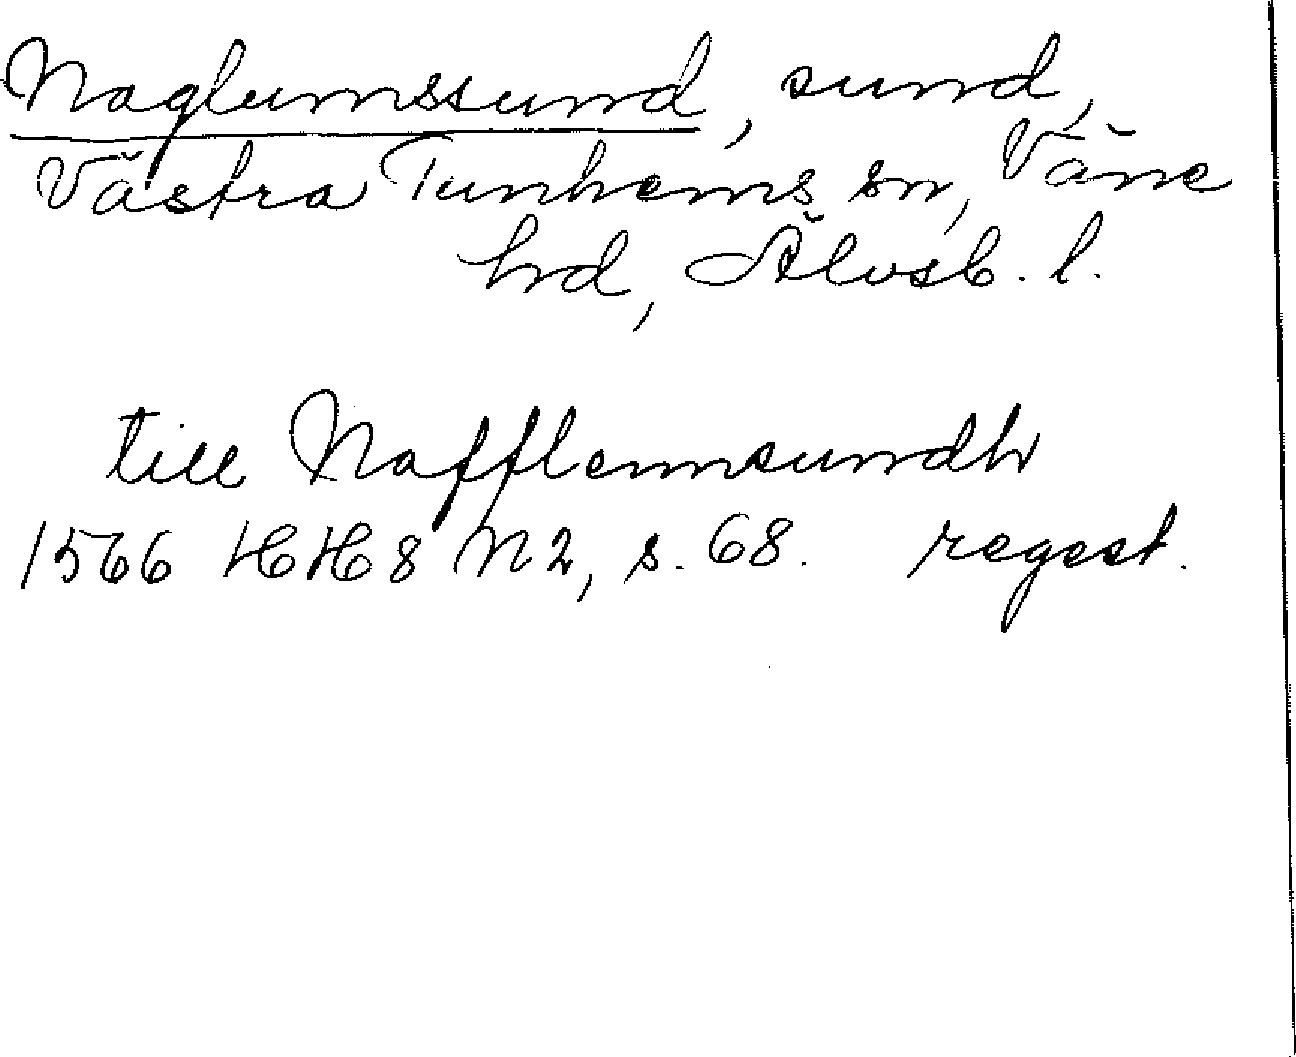 Naglumssund, sund,
Västra Tunhems sn, Väne
hd, Älvsb. l.
till Nafflemsundh
1566 HH8 N2, s. 68. regest.